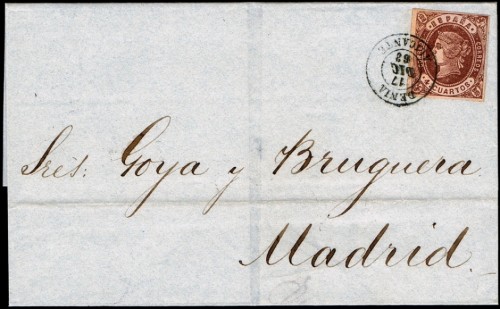 ESPAÑA
CORREOS
4 CUARTOS
DENIA
17
DIC
62
ALICANTE
Sres: Goya y Bruguera
Madrid